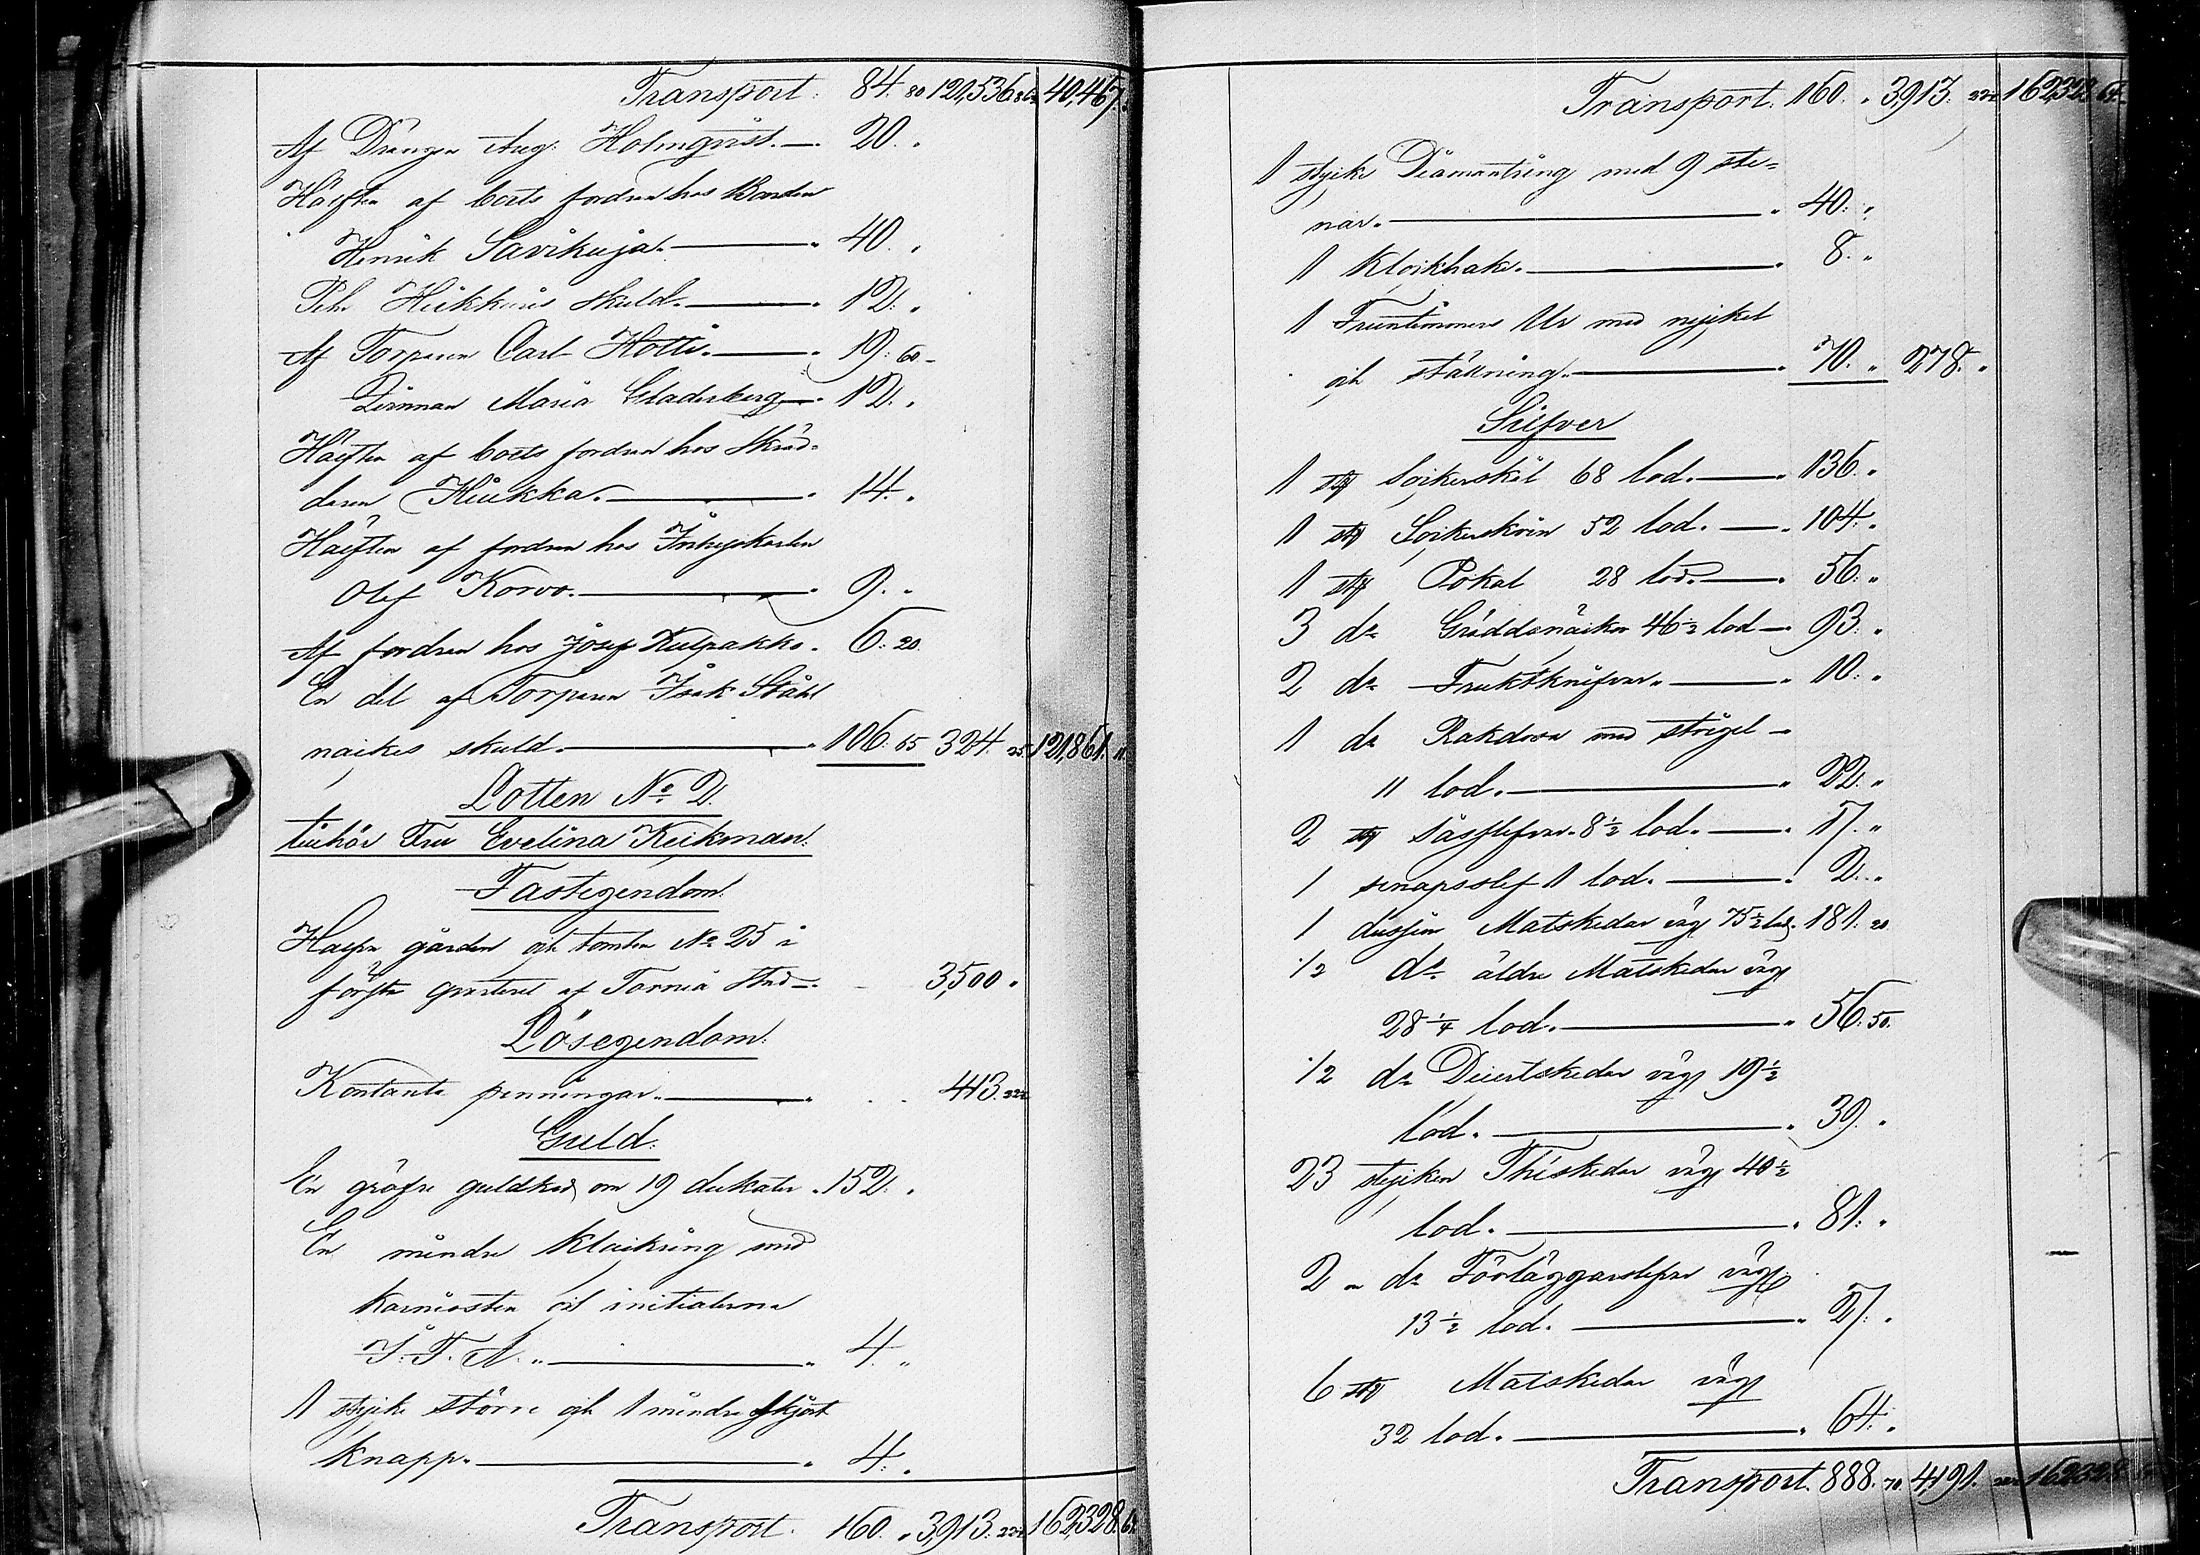 Transport. 84. 80 121,536 86 40,467.
Af Drängen Aug: Holmqvist. 20. "
Hälften af borts fordran hos Bonden
Henrik Savikuja. 40. "
Pehr Hukkas skuld. 12. "
Af Torparen Carl Hotti. 19. 60
Maria Gladerberg 12. "
Hälften af borts fordran hos Skräd-
daren Kiukka. 14. "
Hälften af fordran hos Inhyskarlen
Olof Korvo. 9. "
Af fordran hos Josef Kulpakko. 6. 20
En del af Torparen Isak Ståhl
näckes skuld. 106. 65 324. 25 121,861. 11
Lotten No 2.
tillhör Fru Evelina Keckman.
Fastegendom.
Halfva gården och tomten No 25 i
första qvarteret af Torneå Stad 3,500. "
Lösegendom.
Kontante penningar. 413. 22½
Guld.
En gröfre guldked om 19 dukater. 152. "
En mindre klackring med
och initialerna
I. F. A. " 4. "
1 stycke större och 1 mindre skjort
knapp. 4. "
Transport. 160. " 3,913. 22½ 162,328. 64
Transport. 160. " 3,913. 22½ 162,328. 64
1 stycke Diamantring med 9 ste-
nar. 40. "
1 Klockhake. 8. "
1 Fruntimmers Ur med nyckel
och ställning. 70. " 278. "
Silfver
1 st Sockerskål 68 lod. 136. "
1 st Sockerskrin 52 lod. 104. "
1 st Pokal 28 lod. 56. "
3 do Gräddsnäckor 46½ lod 93. "
2 do Fruktknifvar. 10. "
1 do Rakdosa med strigel
11 lod. 22. "
2 st såsslefvar 8½ lod. 17. "
1 senapsslef 1 lod. 2. "
1 dussin Matskedar väg 75½ lod. 181. 20
1/2 do äldre Matskedar väg
28¼ lod. 56. 50.
1/2 do Desertskedar väg 19½
lod. 39. "
23 stycken Théskedar väg 40½
lod. 81. "
2 " do Förläggarslefvar väg
13½ lod. 27. "
6 st Matskedar väg
32 lod. 64. "
Transport. 888. 70. 4,191. 22½ 162,328. 64